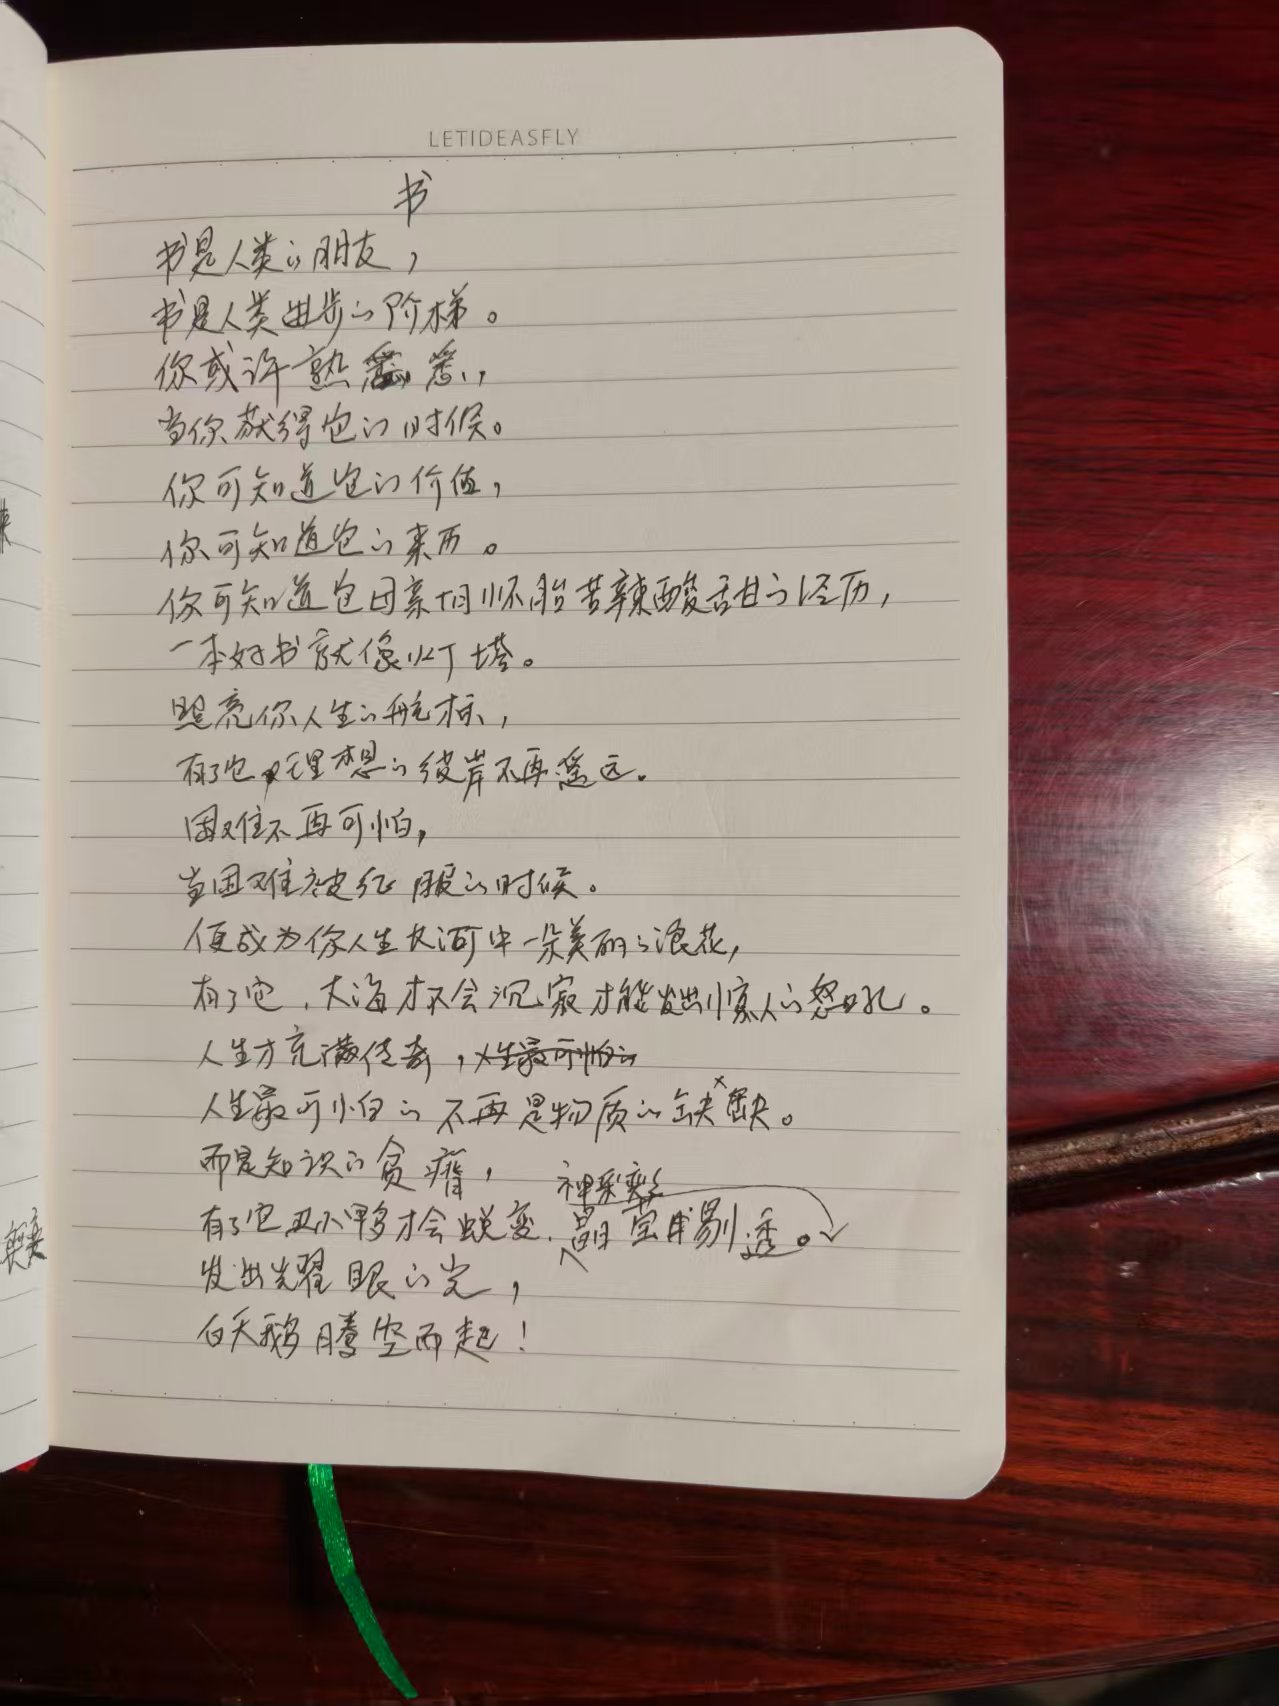 LETIDEASFLY
书
书是人类的朋友，
书是人类进步的阶梯。
你或许熟悉，
当你获得它的时候。
你可知道它的价值，
你可知道它的来历。
你可知道它因亲十月怀胎苦辣酸甜的经历，
一本好书就像灯塔。
照亮你人生的航标，
有了它 理想的彼岸不再遥远。
困难不再可怕，
当困难被征服的时候。
便成为你人生长河中一朵美丽的浪花，
有了它，大海才不会沉寂才能发出惊人的怒吼。
人生才充满传奇，人生最可怕的
人生最可怕的不再是物质的缺
而是知识的贫瘠，
神采奕奕
有了它丑小鸭才会蜕变. 剔透。
发出耀眼的光，
白天鹅腾空而起！